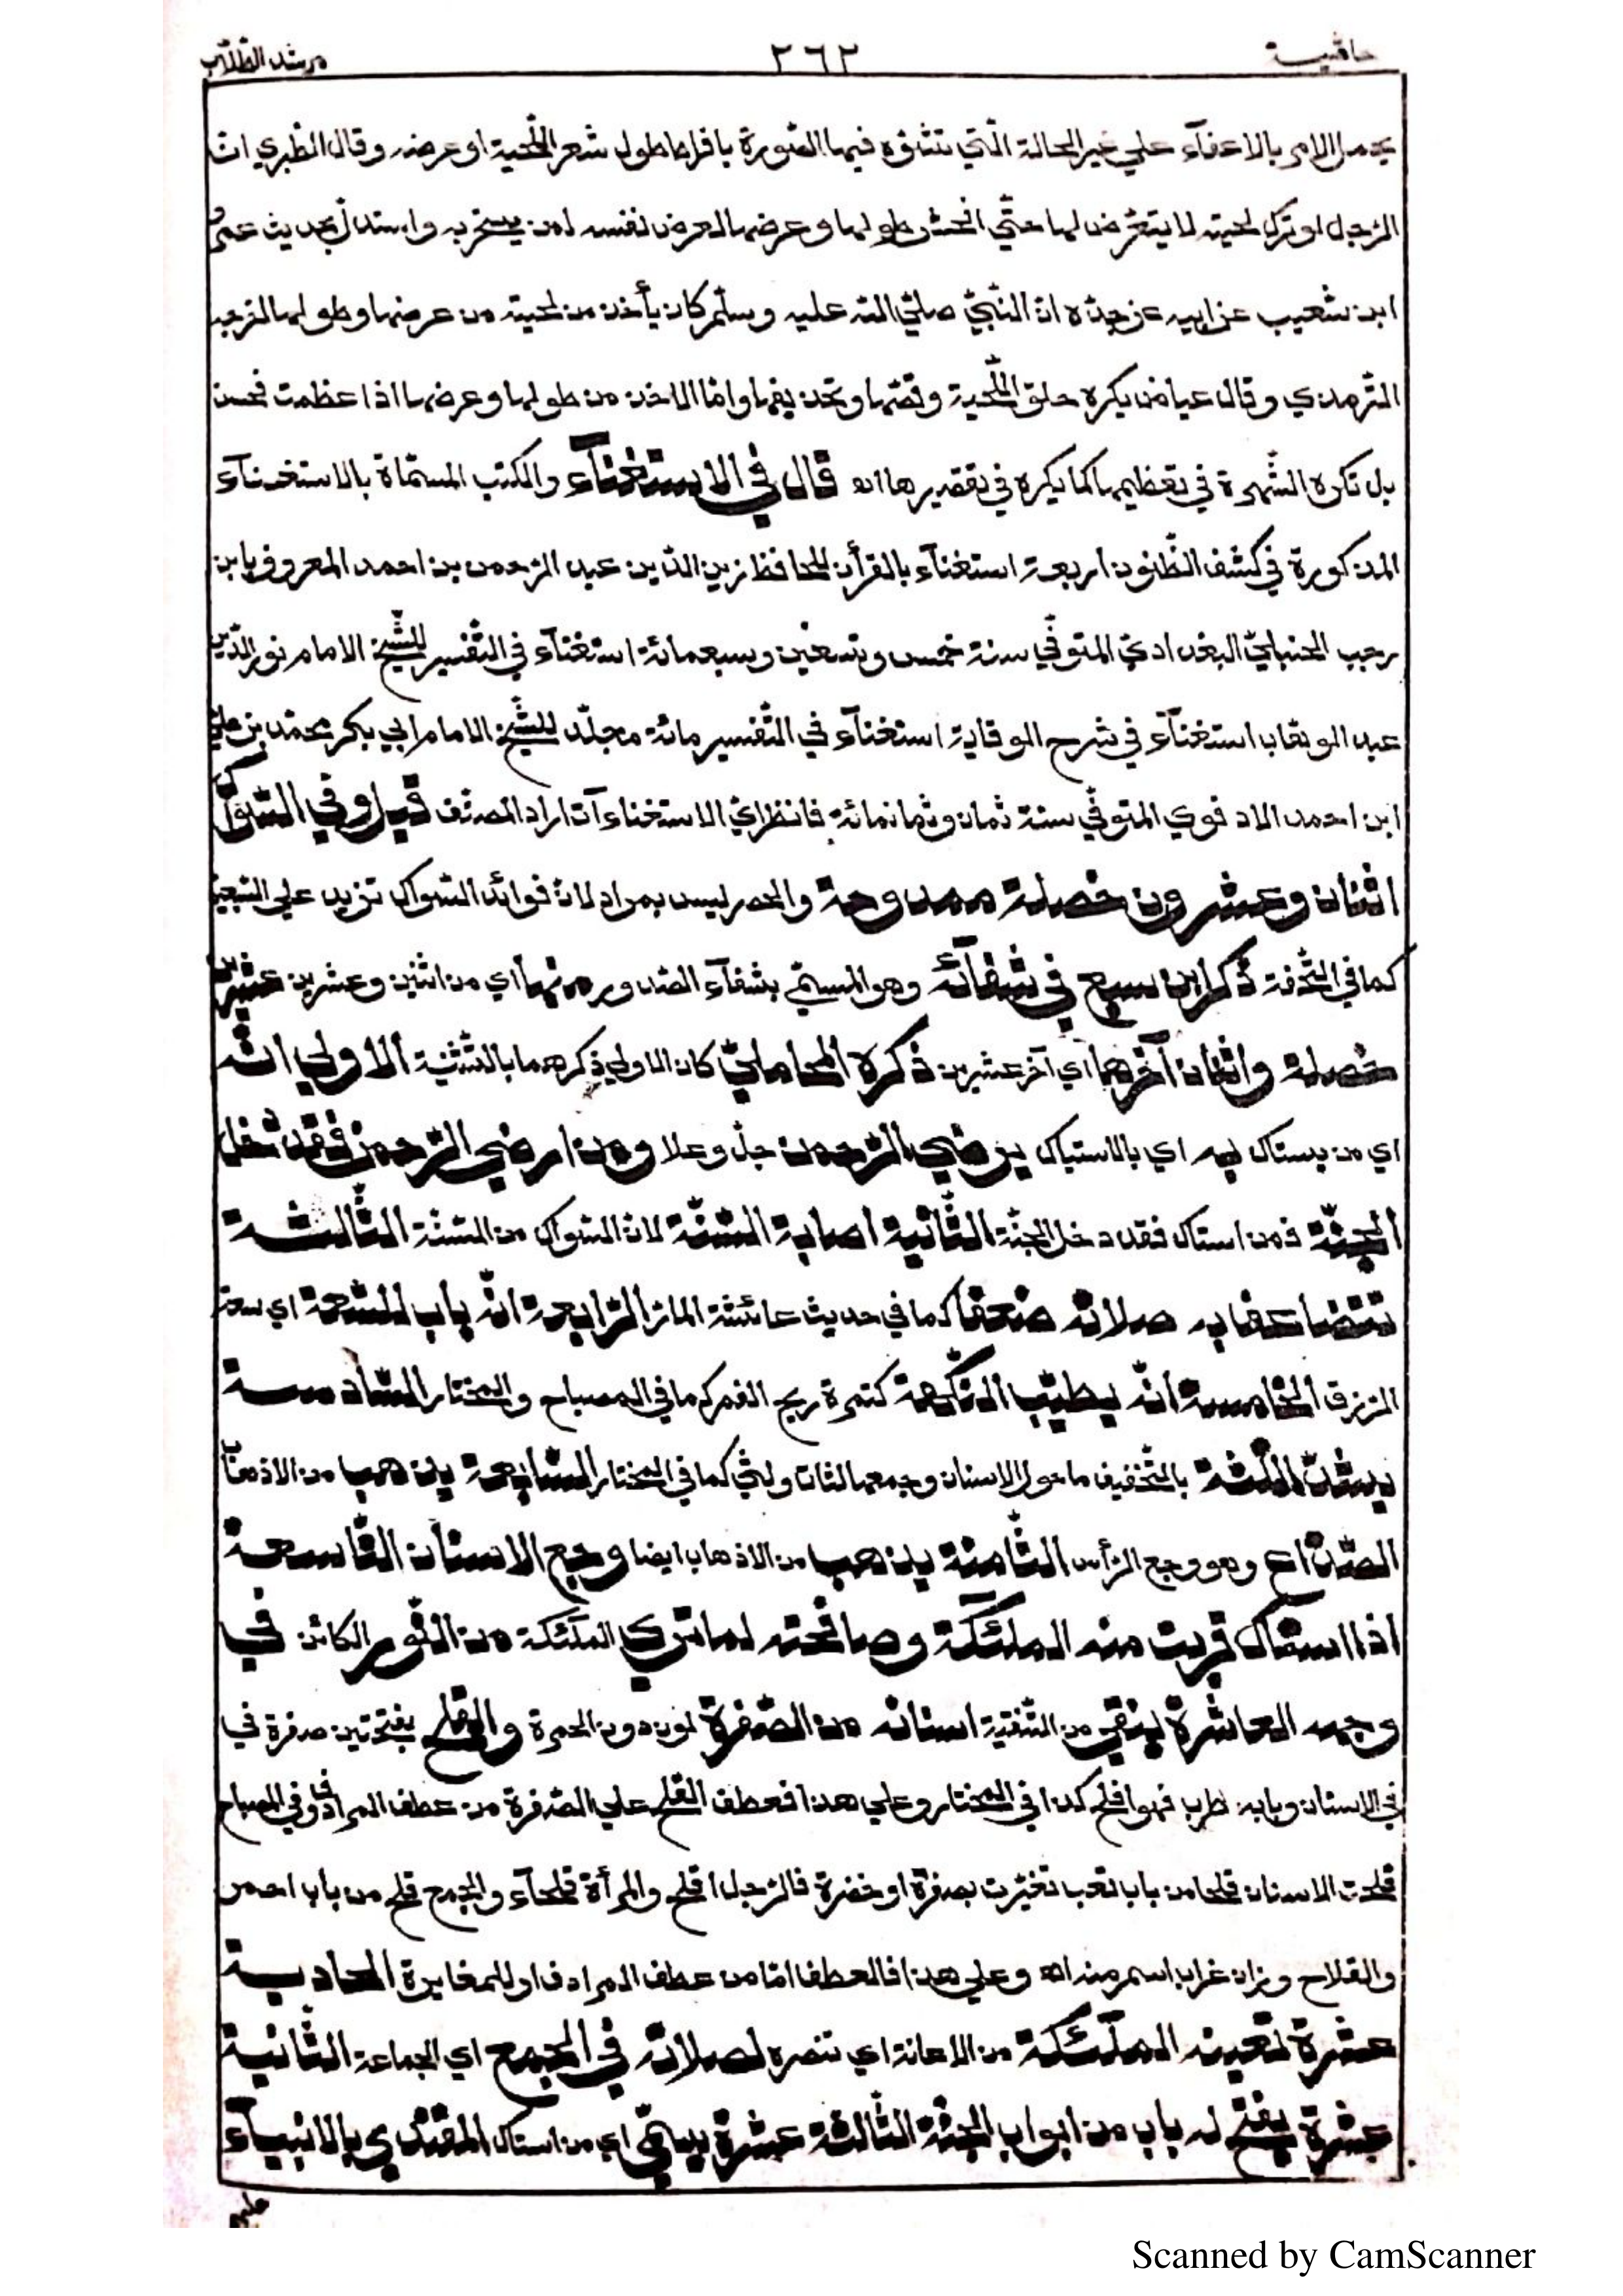 حاشية ٢٦٢ مرشد الطّلّاب
يحمل الامر بالاعفآء علي غير الحالة الّتي تتشوّه فيها الصّورة بافراط طول شعر اللّحية او عرضه وقال الطّبري انّ
الرّجل لو ترك لحيته لا يتعرّض لها حتّي افحش طولها وعرضها لعرض نفسه لمن يسخر به واستدلّ بحديث عمرو
ابن شعيب عن ابيه عن جدّه انّ النّبيّ صلّي الله عليه وسلّم كان يأخذ من لحيته من عرضها وطولها اخرجه
التّرمذي وقال عياض يكره حلق اللّحية وقصّها وتحذيفها وامّا الاخذ من طولها وعرضها اذا عظمت فحسن
بل تكره الشّهرة في تعظيمها كما يكره في تقصيرها اه قال في الاستغنآء والكتب المسمّاة بالاستغنآء
المذكورة في كشف الظّنون اربعة استغنآء بالقرأن للحافظ زين الدّين عبد الرّحمن بن احمد المعروف بابن
رجب الحنبليّ البغداديّ المتوفّي سنة خمس وتسعين وسبعمائة استغنآء في التّفسير للشّيخ الامام نور الدّين
عبد الوهّاب استغنآء في شرح الوقاية استغنآء في التّفسير مائة مجلّد للشّيخ الامام ابي بكر محمّد بن علي
ابن احمد الادفوي المتوفّي سنة ثمان وثمانمائة فانظر ايّ الاستغناءآت اراد المصنّف قيل وفي السّواك
اثنان وعشرون خصلة ممدوحة والحصر ليس بمراد لانّ فوائد السّواك تزيد علي السّبعين
كما في التّحفة ذكر ابن سبع في شفآئه وهو المسمّي بشفآء الصّدور منها اي من اثنين وعشرين عشرين
خصلة واثنان آخرهما اي آخر عشرين ذكره المحامليّ كان الاولي ذكرهما بالتّثنية الاولي انّه
اي من يستاك به اي بالاستياك يرضي الرّحمن جلّ وعلا ومن ارضي الرّحمن فقد دخل
الجنّة فمن استاك فقد دخل الجنّة الثّانية اصابة السّنّة لانّ السّواك من السّنّة الثّالثة
تتضاعف به صلاته ضعفا كما في حديث عائشة المارّ الرّابعة انّه باب للسّعة اي سعة
الرّزق الخامسة انّه يطيّب النّكهة كتمرة ريح الفم كما في المصباح والمختار السّادسة
يشدّ اللّثة بالتّخفيف ما حول الاسنان وجمعها لثات ولثي كما في المختار السّابعة يذهب من الاذهاب
الصّداع وهو وجع الرّأس الثّامنة يذهب من الاذهاب ايضا وجع الاسنان التّاسعة
اذا استاك قربت منه الملئكة وصافحته لما تري الملئكة من النّور الكائن في
وجهه العاشرة ينقي من التّنقية اسنانه من الصّفرة لون دون الحمرة والقلح بفتحتين صفرة في
في الاسنان وبابه طرب فهو اقلح كذا في المختار وعلي هذا فعطف القلح علي الصّفرة من عطف المرادف وفي المصباح
قلحت الاسنان قلحا من باب تعب تغيّرت بصفرة او خضرة فالرّجل اقلح والمرأة قلحآء والجمع قلح من باب احمر
والقلاح وزان غراب اسم منه اه وعلي هذا فالعطف امّا من عطف المرادف او للمغايرة الحادية
عشرة تعينه الملآئكة من الاعانة اي تنصره لصلاته في الجمع اي الجماعة الثّانية
عشرة يفتح له باب من ابواب الجنّة الثّالثة عشرة يسمّي اي من استاك المقتدي بالانبيآء
عليهم
Scanned by CamScanner